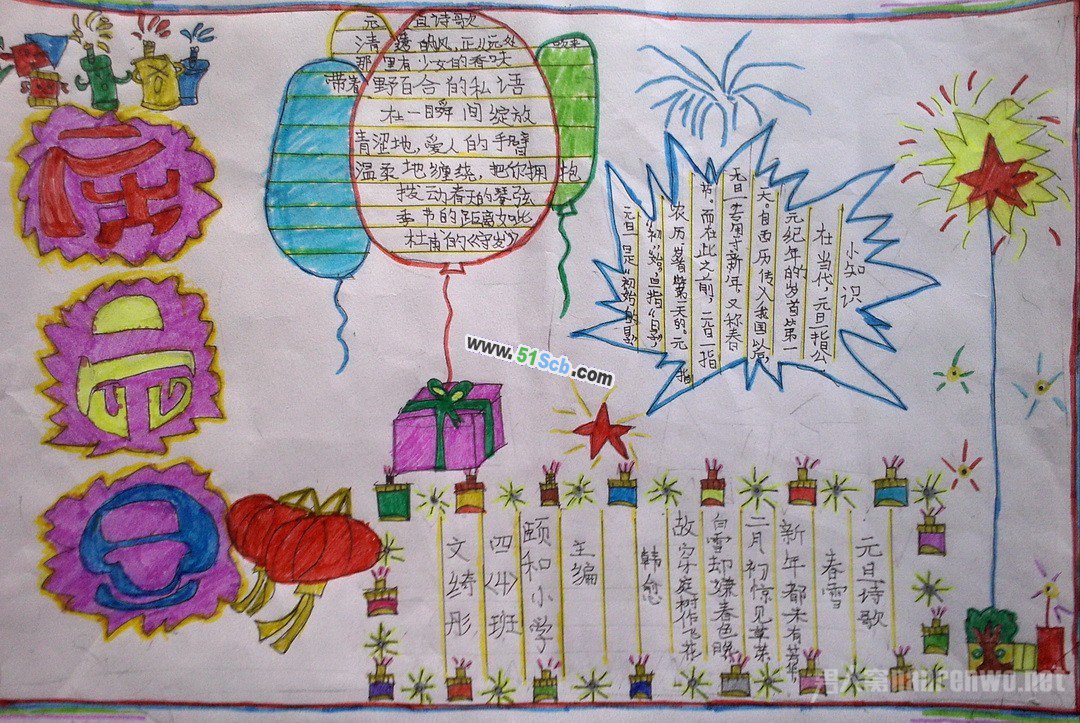 庆
元
旦
元旦诗歌
清缓的风，正从远处
那里有少女的香味
带着野百合的私语
在一瞬间绽放
青涩地，爱人的手臂
温柔地缠绕，把你拥抱
拨动春天的琴弦
季节的距离如此
杜甫的《守岁》
小知识
在当代，元旦一指公
元纪年的岁首第一
天。自西历传入我国以后，
元旦一专用于新年，又称春
节。而在此之前，元旦一指
农历岁首第一天的。元
“初”“始”，旦指“日”
元旦一是“初始的日
www.51Scb.com
元旦诗歌
春雪
新年都未有芳华
二月初惊见草芽
白雪却嫌春色晚
故穿庭树作飞花
韩愈
主编
颐和小学
四〈4〉班
文绮彤